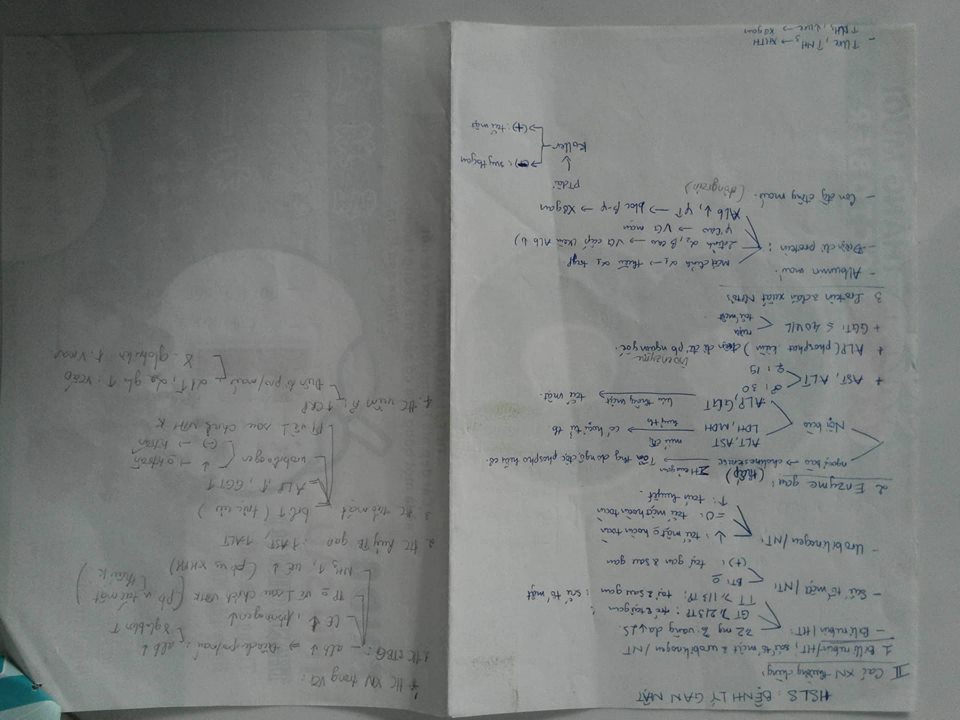 HSLS: BỆNH LÝ GAN MẬT
II Các XN thường dùng:
1 Bilirubin/HT, sắc tố mật & urobilinogen/NT
- Bilirubin/HT:
≥2 mg %: vàng da ↓ LS.
GT ≥ 2/3 TP: trc & tại gan
TT ≥ 1/3 TP: tại & sau gan: sắc tố mật
- Sắc tố mật/NT:
BT: 0
(+): tại gan & sau gan
- Urobilinogen/NT:
↓: tắc mật o hoàn toàn
=0: tắc mật hoàn toàn
↑: tán huyết.
2 Enzyme gan:
ngoại bào → cholinesterase (thấp)
phospho hữu cơ.
Nội bào
ALT, AST
LDH, MDH
huỷ tb
có hoại tử tb
ALP, GGT
lưu thông mật
tắc mật.
+ AST, ALT
♂: 30
♀: 19
+ ALP (phosphat kiềm) điện di isoenzyme để pb nguồn gốc.
+ GGT: ≤ 40 U/L
rượu
tắc mật
3 Protein & dẫn xuất Nitơ
- Albumin máu.
- Điện di protein:
Mất đỉnh α1 → thiếu α1
2 đỉnh α2, β cao → VG cấp (kèm Alb ↓)
γ cao → VG mạn
Alb ↓, γ↑ → bloc β-γ → Xơ gan
- Con đg đông máu. (đông máu)
PT dài
↓
Koller
(-): suy tb gan
(+): tắc mật
- ↑ Ure, ↑ NH3 → XHTH
↑ NH3, ↓ ure → Xơ gan
* HC XN trong VG:
1. HC STBG:
- alb ↓ → Điện di pro/máu:
alb ↓
γ globulin ↑
CE ↓, fibrinogen ↓
TP o về 1 sau chích VTM K (pb
tắc mật
thiếu K)
NH3 ↑, urê ↓ (pb vs XHTH)
2. HC huỷ TB gan: ↑ AST, ↑ ALT
3 HC tắc mật
bil ↑ (trực tiếp)
ALP ↑, GGT ↑
urobilinogen
↓ → o htoàn
(-) → htoàn
PT về 1 sau chích VTM K
4. HC viêm: ↑ CRP
Điện di pro/máu
α1 ↑, α2 glb ↑: V cấp
γ. globulin ↑: V mạn